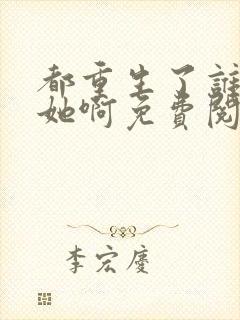 都重生了誰
她啊免費閱
李宏慶